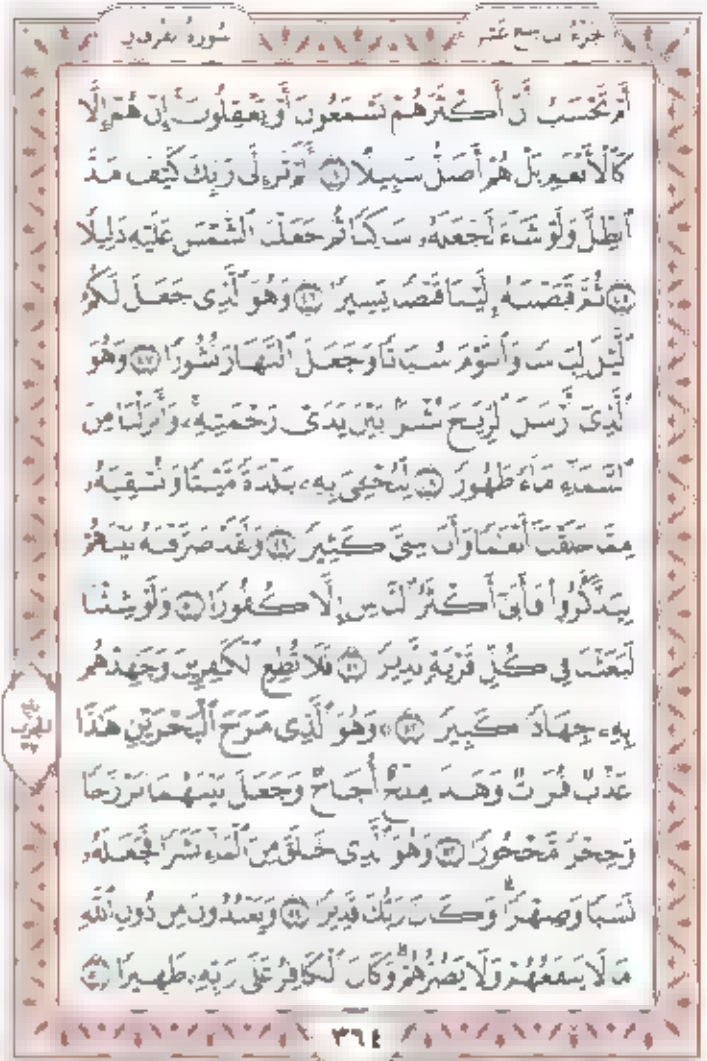 سُورَةُ الفُرْقَانِ
الجُزْءُ التَّاسِعَ عَشَرَ
أَمْ تَحْسَبُ أَنَّ أَكْثَرَهُمْ يَسْمَعُونَ أَوْ يَعْقِلُونَ إِنْ هُمْ إِلَّا
كَالْأَنْعَامِ بَلْ هُمْ أَضَلُّ سَبِيلًا ٤٤ أَلَمْ تَرَ إِلَى رَبِّكَ كَيْفَ مَدَّ
ٱلظِّلَّ وَلَوْ شَآءَ لَجَعَلَهُۥ سَاكِنًا ثُمَّ جَعَلْنَا ٱلشَّمْسَ عَلَيْهِ دَلِيلًا
٤٥ ثُمَّ قَبَضْنَٰهُ إِلَيْنَا قَبْضًا يَسِيرًا ٤٦ وَهُوَ ٱلَّذِى جَعَلَ لَكُمُ
ٱلَّيْلَ لِبَاسًا وَٱلنَّوْمَ سُبَاتًا وَجَعَلَ ٱلنَّهَارَ نُشُورًا ٤٧ وَهُوَ
ٱلَّذِىٓ أَرْسَلَ ٱلرِّيَٰحَ بُشْرًۢا بَيْنَ يَدَىْ رَحْمَتِهِۦ وَأَنزَلْنَا مِنَ
ٱلسَّمَآءِ مَآءً طَهُورًا ٤٨ لِّنُحْۦِىَ بِهِۦ بَلْدَةً مَّيْتًا وَنُسْقِيَهُۥ
مِمَّا خَلَقْنَآ أَنْعَٰمًا وَأَنَاسِىَّ كَثِيرًا ٤٩ وَلَقَدْ صَرَّفْنَٰهُ بَيْنَهُمْ
لِيَذَّكَّرُوا۟ فَأَبَىٰٓ أَكْثَرُ ٱلنَّاسِ إِلَّا كُفُورًا ٥٠ وَلَوْ شِئْنَا
لَبَعَثْنَا فِى كُلِّ قَرْيَةٍ نَّذِيرًا ٥١ فَلَا تُطِعِ ٱلْكَٰفِرِينَ وَجَٰهِدْهُم
بِهِۦ جِهَادًا كَبِيرًا ٥٢ ۞ وَهُوَ ٱلَّذِى مَرَجَ ٱلْبَحْرَيْنِ هَٰذَا
عَذْبٌ فُرَاتٌ وَهَٰذَا مِلْحٌ أُجَاجٌ وَجَعَلَ بَيْنَهُمَا بَرْزَخًا
وَحِجْرًا مَّحْجُورًا ٥٣ وَهُوَ ٱلَّذِى خَلَقَ مِنَ ٱلْمَآءِ بَشَرًا فَجَعَلَهُۥ
نَسَبًا وَصِهْرًا ۗ وَكَانَ رَبُّكَ قَدِيرًا ٥٤ وَيَعْبُدُونَ مِن دُونِ ٱللَّهِ
مَا لَا يَنفَعُهُمْ وَلَا يَضُرُّهُمْ ۗ وَكَانَ ٱلْكَافِرُ عَلَىٰ رَبِّهِۦ ظَهِيرًا ٥٥
٣٦٤